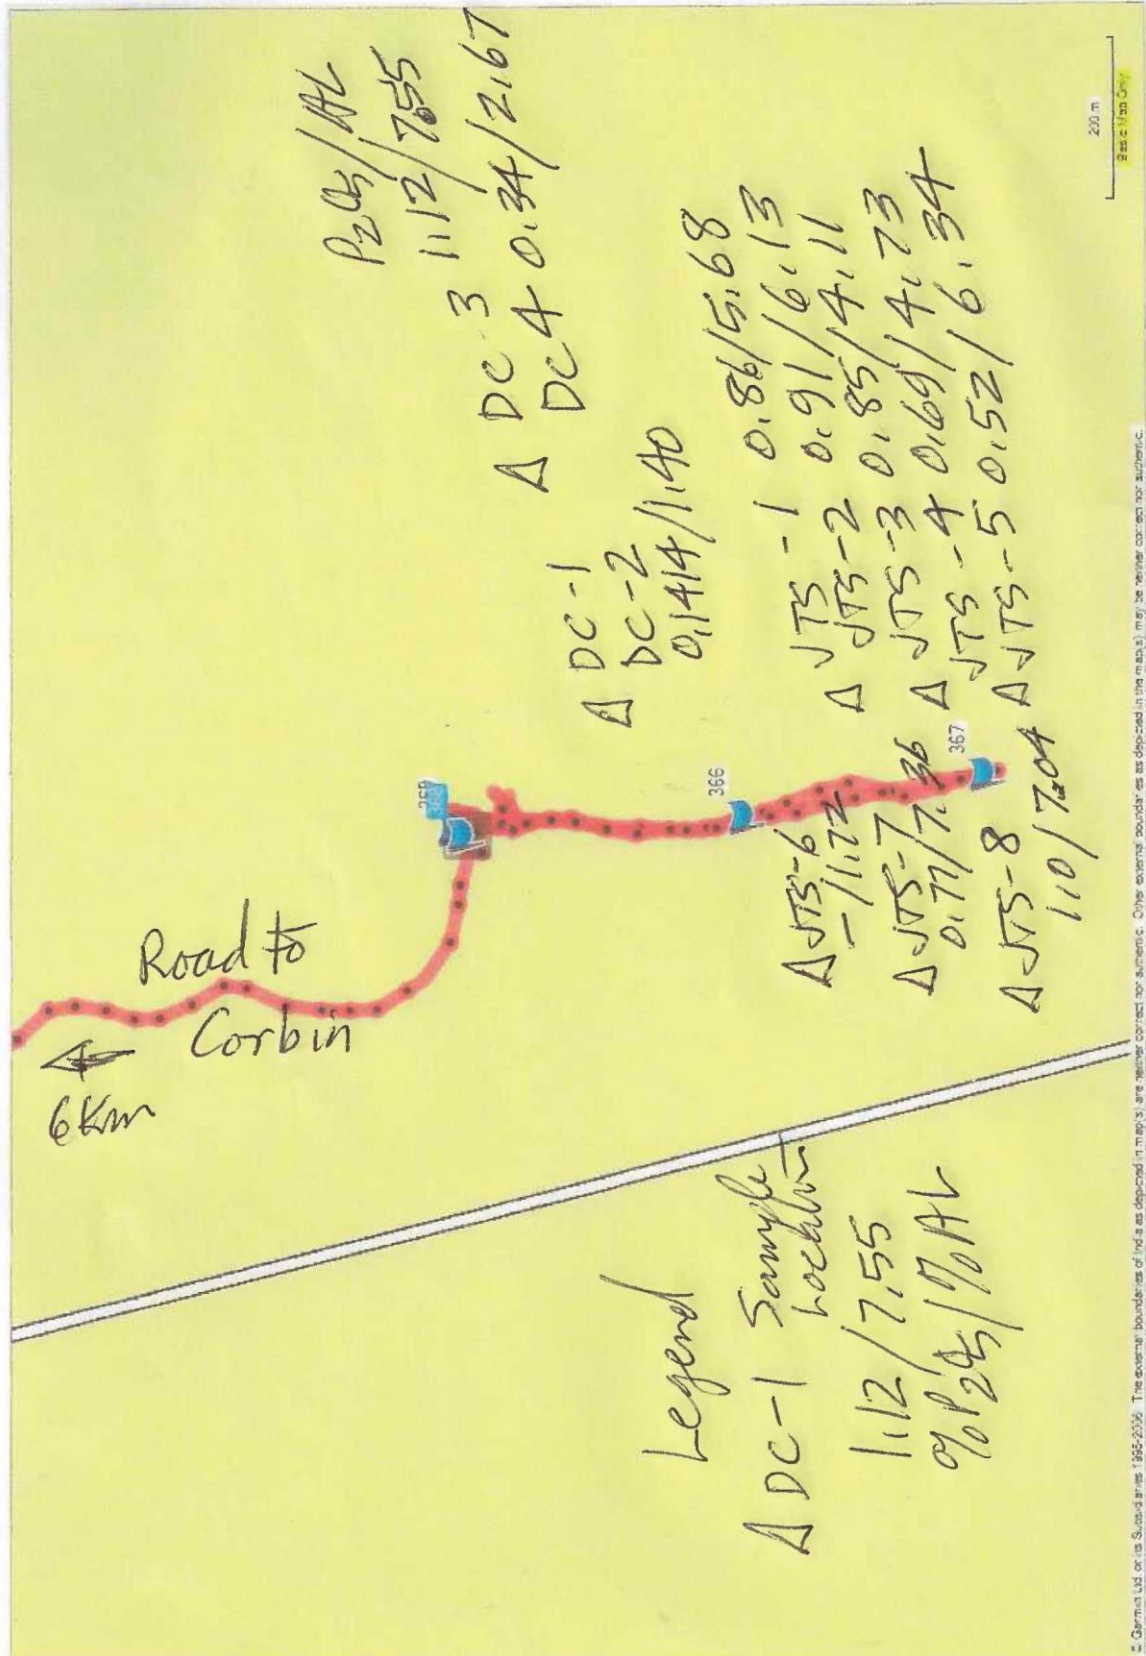 6 Km
Road to
Corbin
369
368
366
367
P2O5/AL
DC-3 1.12/7.55
DC4 0.34/2.67
DC-1
DC-2
0.1414/1.40
JTS-1 0.86/5.68
JTS-2 0.91/6.13
JTS-3 0.85/4.11
JTS-4 0.69/4.73
JTS-5 0.52/6.34
JTS-6
-/1.72
JTS-7
0.77/7.36
JTS-8
1.10/7.04
Legend
DC-1 Sample
Location
1.12/7.55
%P2O5/%AL
200 m
Basic Map Only
© Garmin Ltd or its Subsidiaries 1995-2006 The external boundaries of India as depicted in map(s) are neither correct nor authentic. Other external boundaries as depicted in the map(s) may be neither correct nor authentic.